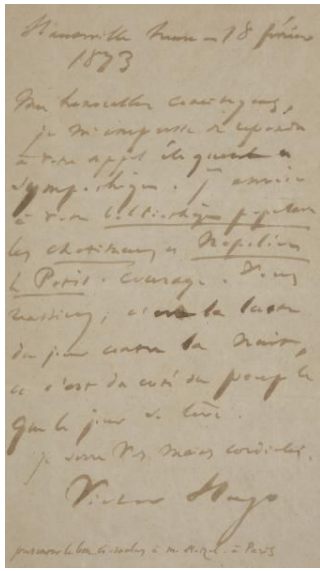 Hauteville house – 18 février
1873
Mes honorables concitoyens,
je m'empresse de répondre
à votre appel éloquent et
sympathique. J'envoie
à votre bibliothèque populaire
les châtiments et Napoléon
le Petit. Courage. Vous
réussirez, c'est la lutte
du jour contre la nuit,
et c'est du côté du peuple
que le jour se lève.
je serre vos mains cordiales.
Victor Hugo
à Paris